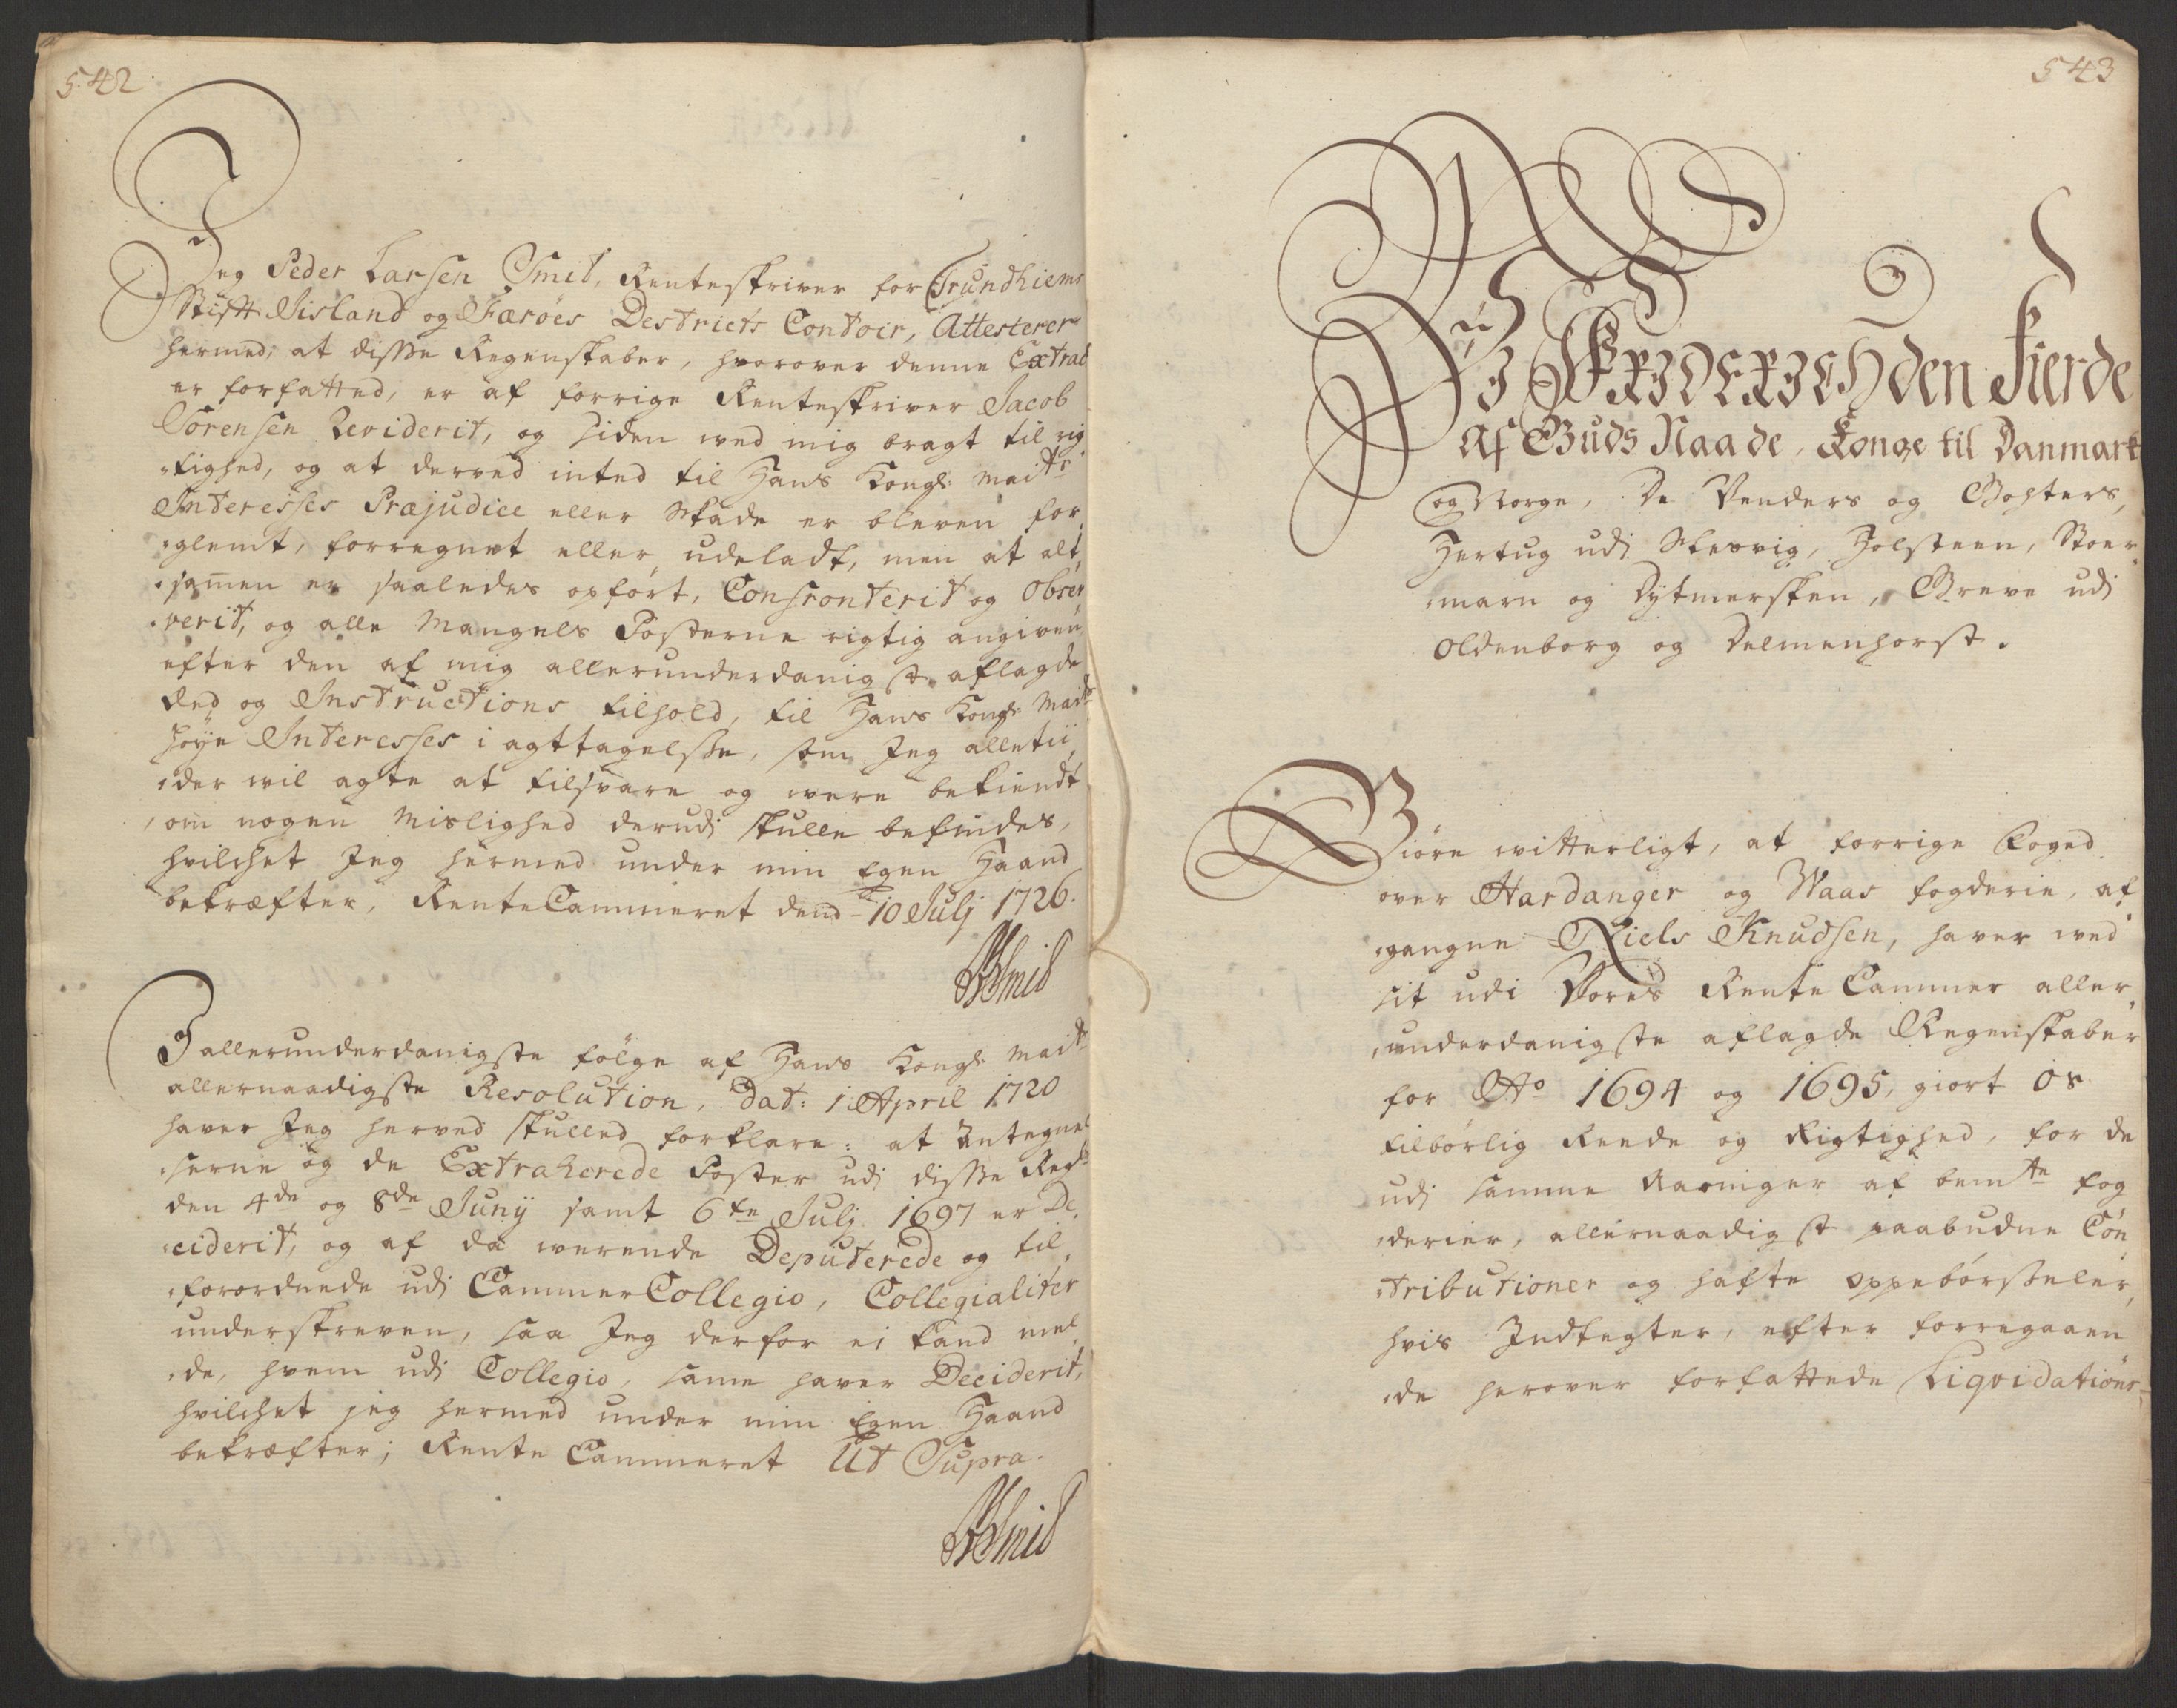 542
Jeg Peder Larsen Smid, Renteskriver for Trundhiems
Stift Iisland og Færöes Destricts Contoir, Attesterer
hermed, at disse Regenskaber, hvorover denne Extract
er forfatted, er af forrige Renteskriver Jacob
Sörensen Reviderit, og siden ved mig bragt til rig-
-tighed, og at derved inted til Hans Kongl: Maits
Interesses Præjudice eller Skade er bleven for-
-glemt, forregnet eller udeladt, men at alt-
-samen er saaledes opfört, Confronterit og Obser-
-verit, og alle Mangels Posterne rigtig angiven,
efter den af mig allerunderdanigst aflagde
Eed og Instructions tilhold, til Hans Kongl: Maits
höye Interesses i agttagelsse, som Jeg alletii-
-der vil agte at tilsvare og være bekiendt
, om nogen Mislighed derudj skulle befindes,
hvilchet Jeg hermed under min Egen Haand
bekræfter, RenteCammeret dend 10 Julj 1726.
PLSmid
I allerunderdanigste fölge af Hans Kongl: Maits
allernaadigste Resolution, Dat: 1 April 1720
haver Jeg herved skulled forklare: at Antegnel-
-serne og de Extraherede Poster udj disse Regsk:
den 4de og 8de Junij samt 6te Julj 1697 er De-
-ciderit, og af da værende Deputerede og til-
-forordnede udj CammerCollegio, Collegialiter
underskreven, saa Jeg derfor ei kand mel-
-de, hvem udj Collegio, same haver Deciderit,
hvilchet jeg hermed under min Egen Haand
bekræfter; Rente Cammeret Ut Supra.
PLSmid
543
Wi FRIDERICH den Fierde
Af Guds Naade, Konge til Danmark
og Norge, De Venders og Gohters,
Hertug udj Slesvig, Holsteen, Stoer-
-marn og Dytmersken, Greve udj
Oldenborg og Delmenhorst.
Giöre vitterligt, at forrige Foged
over Hardanger og Waas fogderie, af-
-gangne Niels Knudsen, haver ved
sit udi Vores Rente Cammer aller-
-underdanigste aflagde Regenskaber
for Ao 1694 og 1695, giort Os
tilbörlig Reede og Rigtighed, for de
udj samme Aaringer af bemte fog-
-derier, allernaadigst paabudne Con-
-tributioner og hafte Oppebörsseler,
hvis Indtegter, efter forregaaen-
-de herover forfattede Liqvidations-